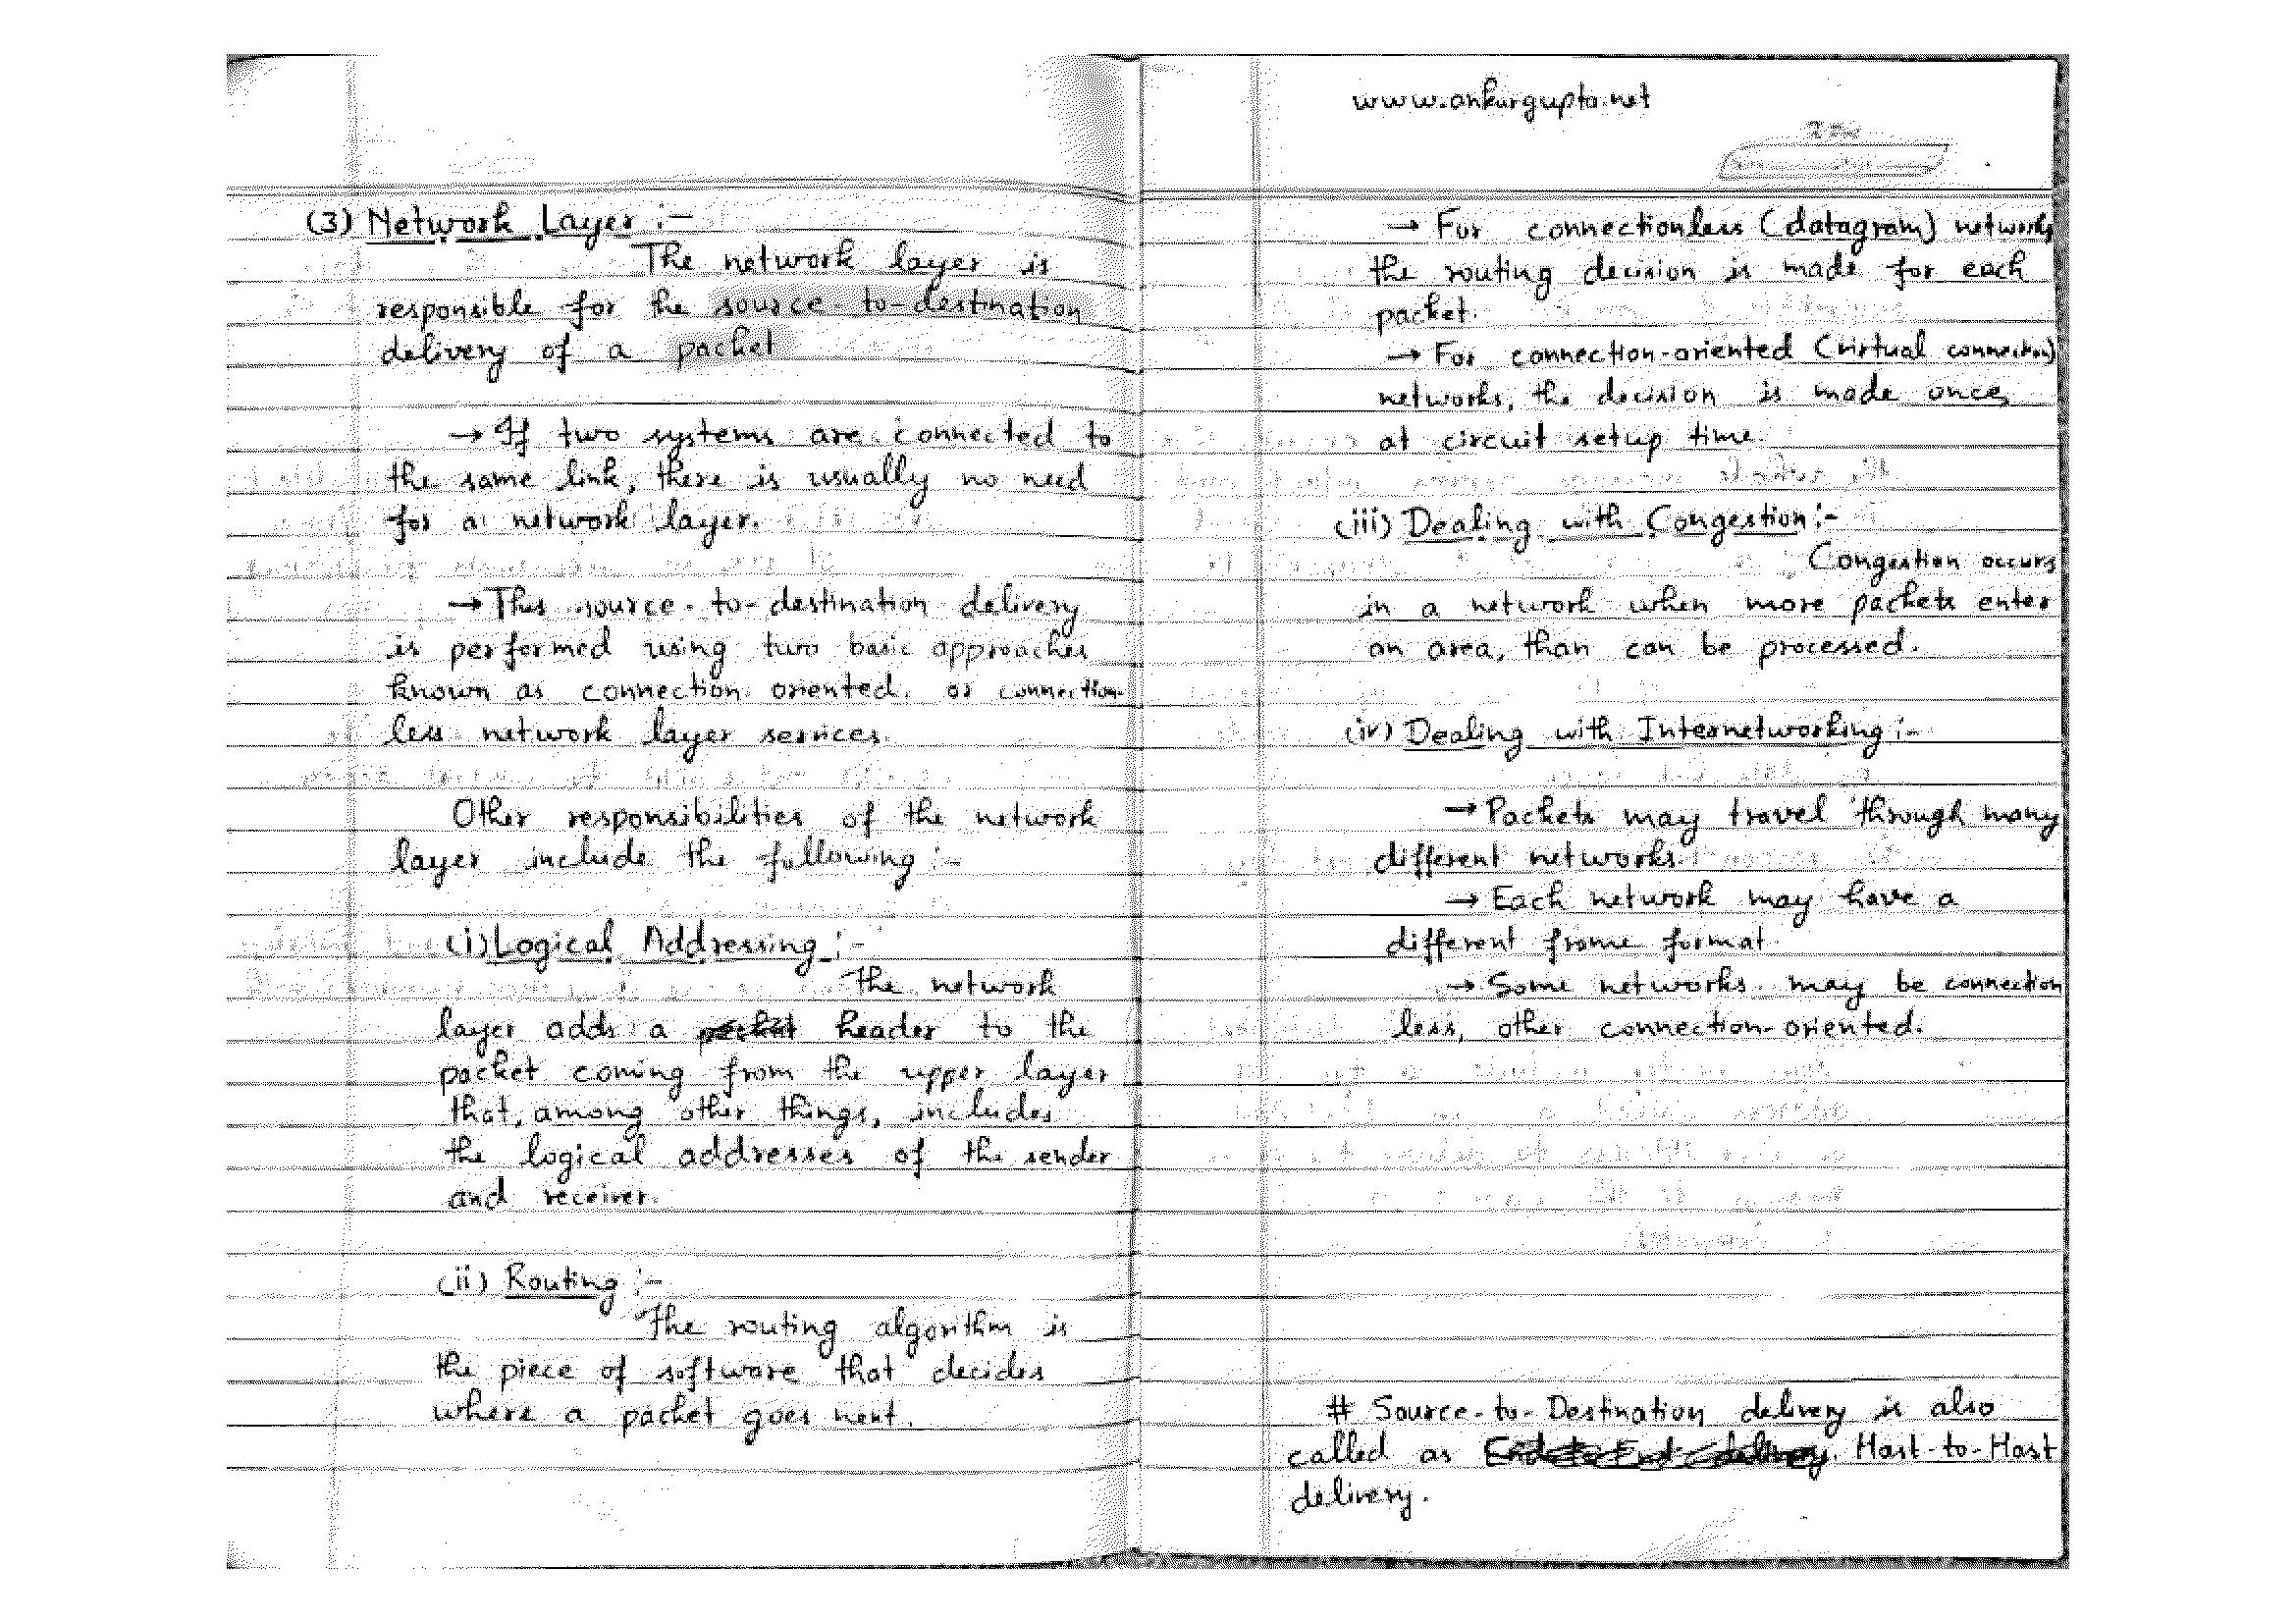 (3) Network Layer :-
The network layer is
responsible for the source to-destination
delivery of a packet
→ If two systems are connected to
the same link, there is usually no need
for a network layer.
→ This source-to-destination delivery
is performed using two basic approaches
known as connection oriented or connection-
less network layer services.
Other responsibilities of the network
layer include the following :-
(i) Logical Addressing :-
The network
layer adds a header to the
packet coming from the upper layer
that, among other things, includes
the logical addresses of the sender
and receiver.
(ii) Routing :-
The routing algorithm is
the piece of software that decides
where a packet goes next.
www.ankurgupta.net
→ For connectionless (datagram) networks
the routing decision is made for each
packet.
→ For connection-oriented (virtual connection)
networks, the decision is made once,
at circuit setup time.
(iii) Dealing with Congestion :-
Congestion occurs
in a network when more packets enter
an area, than can be processed.
(iv) Dealing with Internetworking :-
→ Packets may travel through many
different networks.
→ Each network may have a
different frame format.
→ Some networks may be connection
less, other connection-oriented.
# Source-to-Destination delivery is also
called as Host-to-Host
delivery.